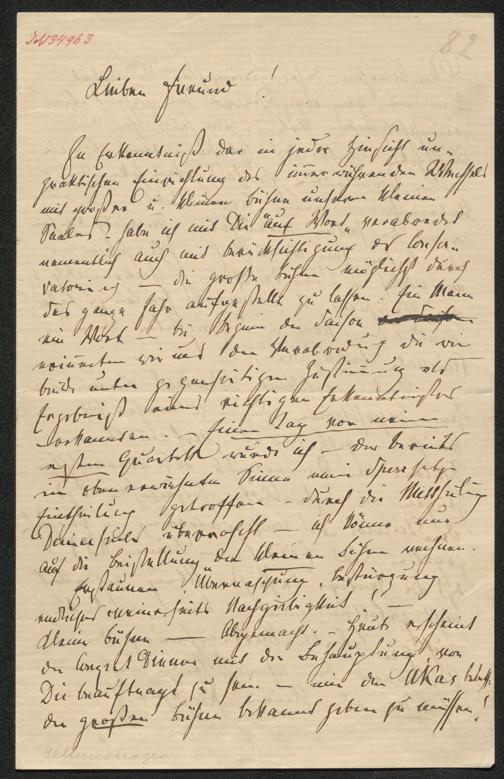 JN34963
82
Lieber Freund!
In Erkenntniß der in jeder Hinsicht un-
praktischen Einrichtung des immerwährenden Wechsels
mit großer u. kleiner Bühne unseres kleinen
Saales habe ich mit Dir "auf Wort" verabredet
namentlich auch mit Berücksichtigung des Conser-
vatorium — die große Bühne möglichst durch
das ganze Jahr aufgestellt zu lassen. Ein Mann
ein Wort — bei Beginn der Saison
erinnerten wir uns der Verabredung die wir
beide unter gegenseitiger Zustimmung als
Ergebniß eines richtigen Erkenntnißes
anerkannten. — Einen Tag vor meinem
ersten Quartett wurde ich — der bereits
in oben erwähntem Sinne meine
Eintheilung getroffen — durch die Mittheilung
Deinerseits überrascht — ich könne nur
auf die Beistellung der kleinen Bühne rechnen.
Erstaunen Überraschung, Bestürzung
endlich meinerseits Nachgiebigkeit! —
kleine Bühne — Abgemacht. — Heute erscheint
der Concert Diener mit der Behauptung von
Dir beauftragt zu sein — mir den Ukas betreffs
der großen Bühne bekannt geben zu müssen!
Hellmesberger